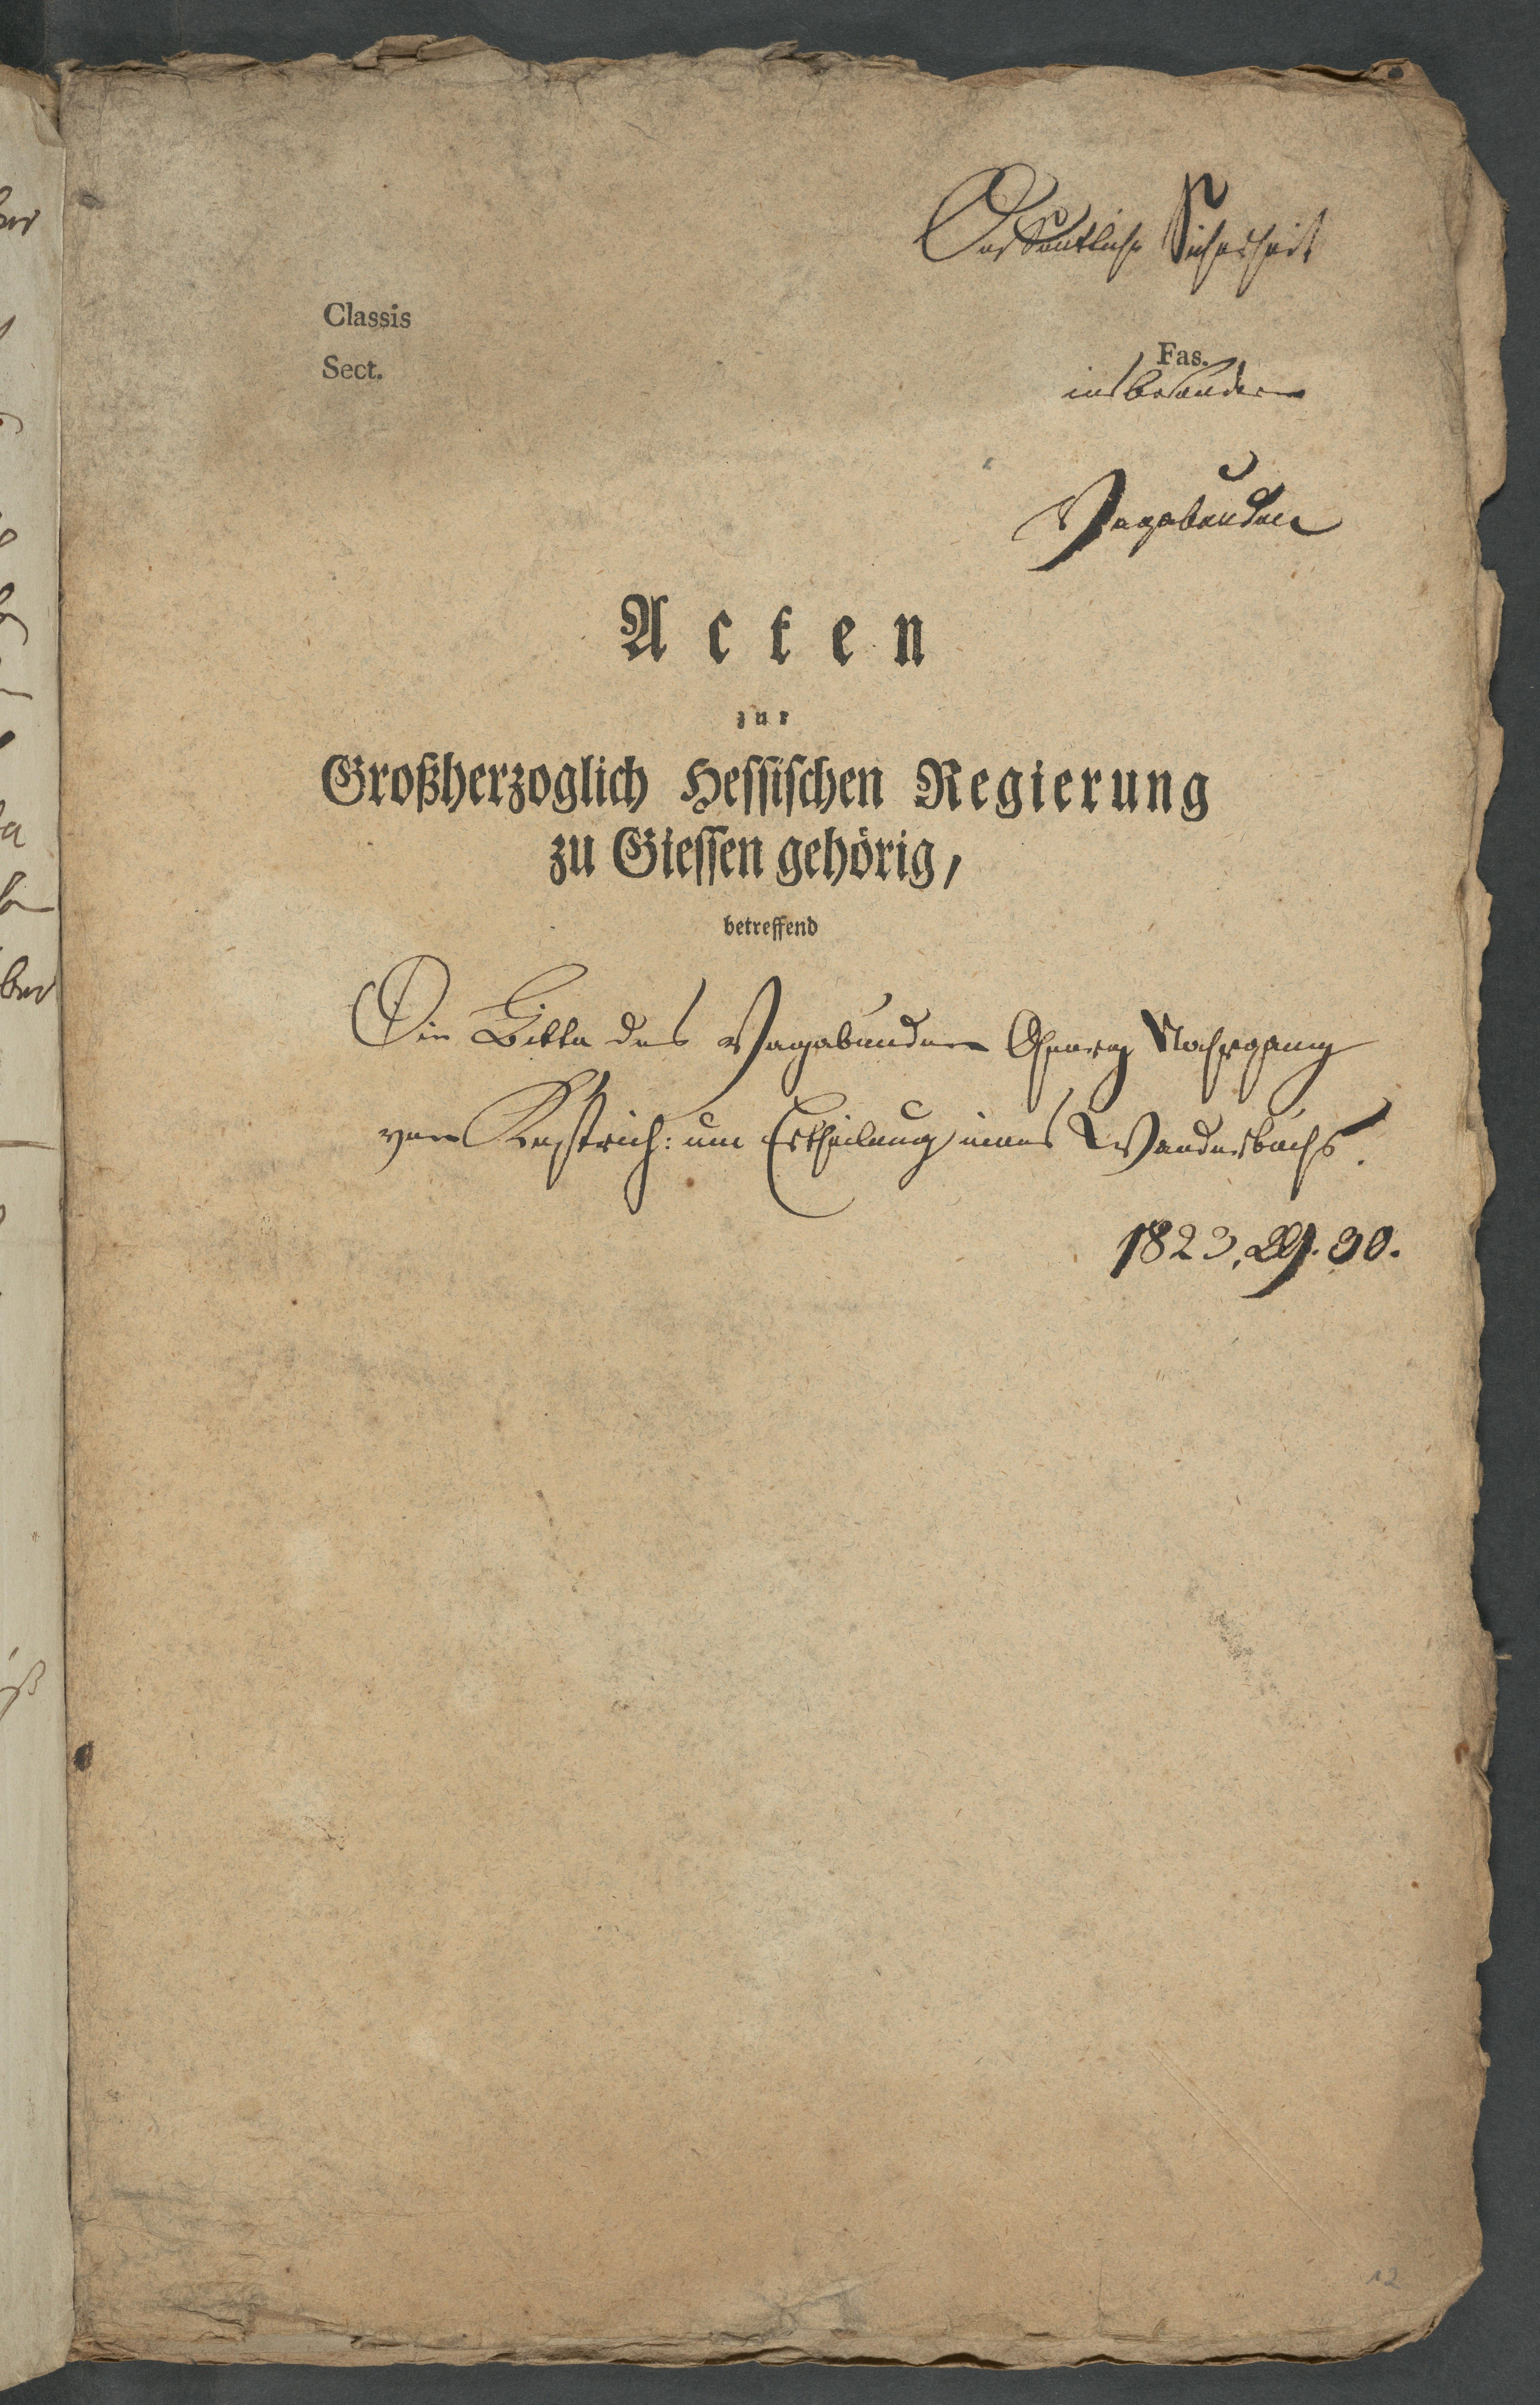 Oeffentliche Sicherheit
Classis
Sect.
Fas.
insbesondere
Vagabunden
Acten
zur
Großherzoglich Hessischen Regierung
zu Giessen gehörig,
betreffend
Die Bitte des Vagabunden Georg Nachgang
von Kestrich: um Ertheilung eines Wanderbuchs.
1823, 29. 30.
12